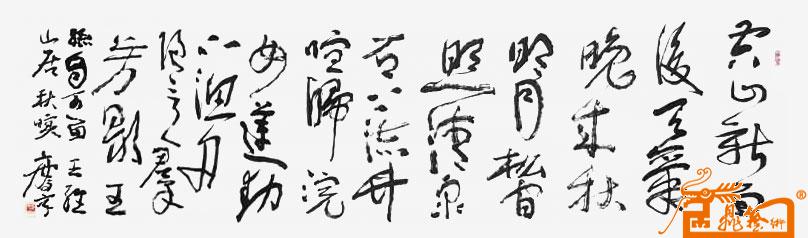 空山新雨
後天氣
晚来秋
明月松間
照清泉
石上流竹
喧歸浣
女蓮動
下漁舟
随意春
芳歇王
孫自可留 王維
山居秋暝